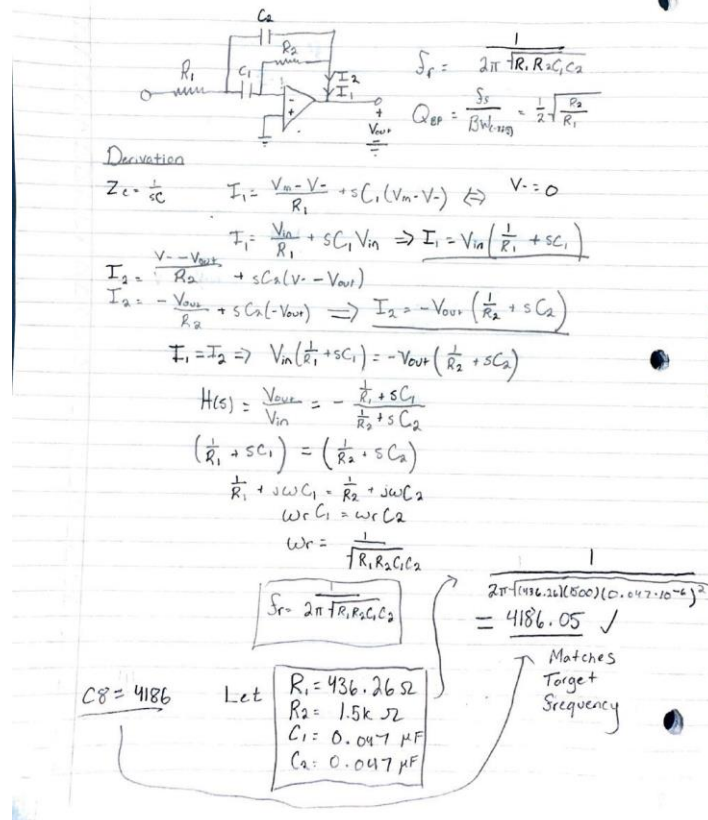 C₂
R₂
R₁ C₁ I₂
I₁
-
+
+
Vout
-
fr = 1 / 2π √R₁R₂C₁C₂
Q_BP = fs / BW(-3dB) = 1/2 √R₂/R₁
Derivation
Zc = 1/sC I₁ = Vin - V- / R₁ + sC₁(Vin - V-) ⇔ V- = 0
I₁ = Vin/R₁ + sC₁Vin ⇒ I₁ = Vin(1/R₁ + sC₁)
I₂ = V- - Vout / R₂ + sC₂(V- - Vout)
I₂ = -Vout/R₂ + sC₂(-Vout) ⇒ I₂ = -Vout(1/R₂ + sC₂)
I₁ = I₂ => Vin(1/R₁ + sC₁) = -Vout(1/R₂ + sC₂)
H(s) = Vout/Vin = - (1/R₁ + sC₁) / (1/R₂ + sC₂)
(1/R₁ + sC₁) = (1/R₂ + sC₂)
1/R₁ + jωC₁ = 1/R₂ + jωC₂
ωrC₁ = ωrC₂
ωr = 1 / √R₁R₂C₁C₂
fr = 1 / 2π √R₁R₂C₁C₂
1 / 2π √(436.26)(1500)(0.047·10⁻⁶)²
= 4186.05 ✓
Matches
Target
frequency
C8 = 4186 Let
R₁ = 436.26 Ω
R₂ = 1.5k Ω
C₁ = 0.047 μF
C₂ = 0.047 μF